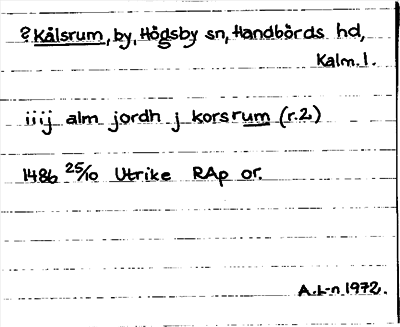 ? Kålsrum, by, Högsby sn, Handbörds hd,
Kalm. l.
iiij alm jordh j korsrum (r.2)
1486 25/10 Utrike RAp or.
A.L-n 1972.